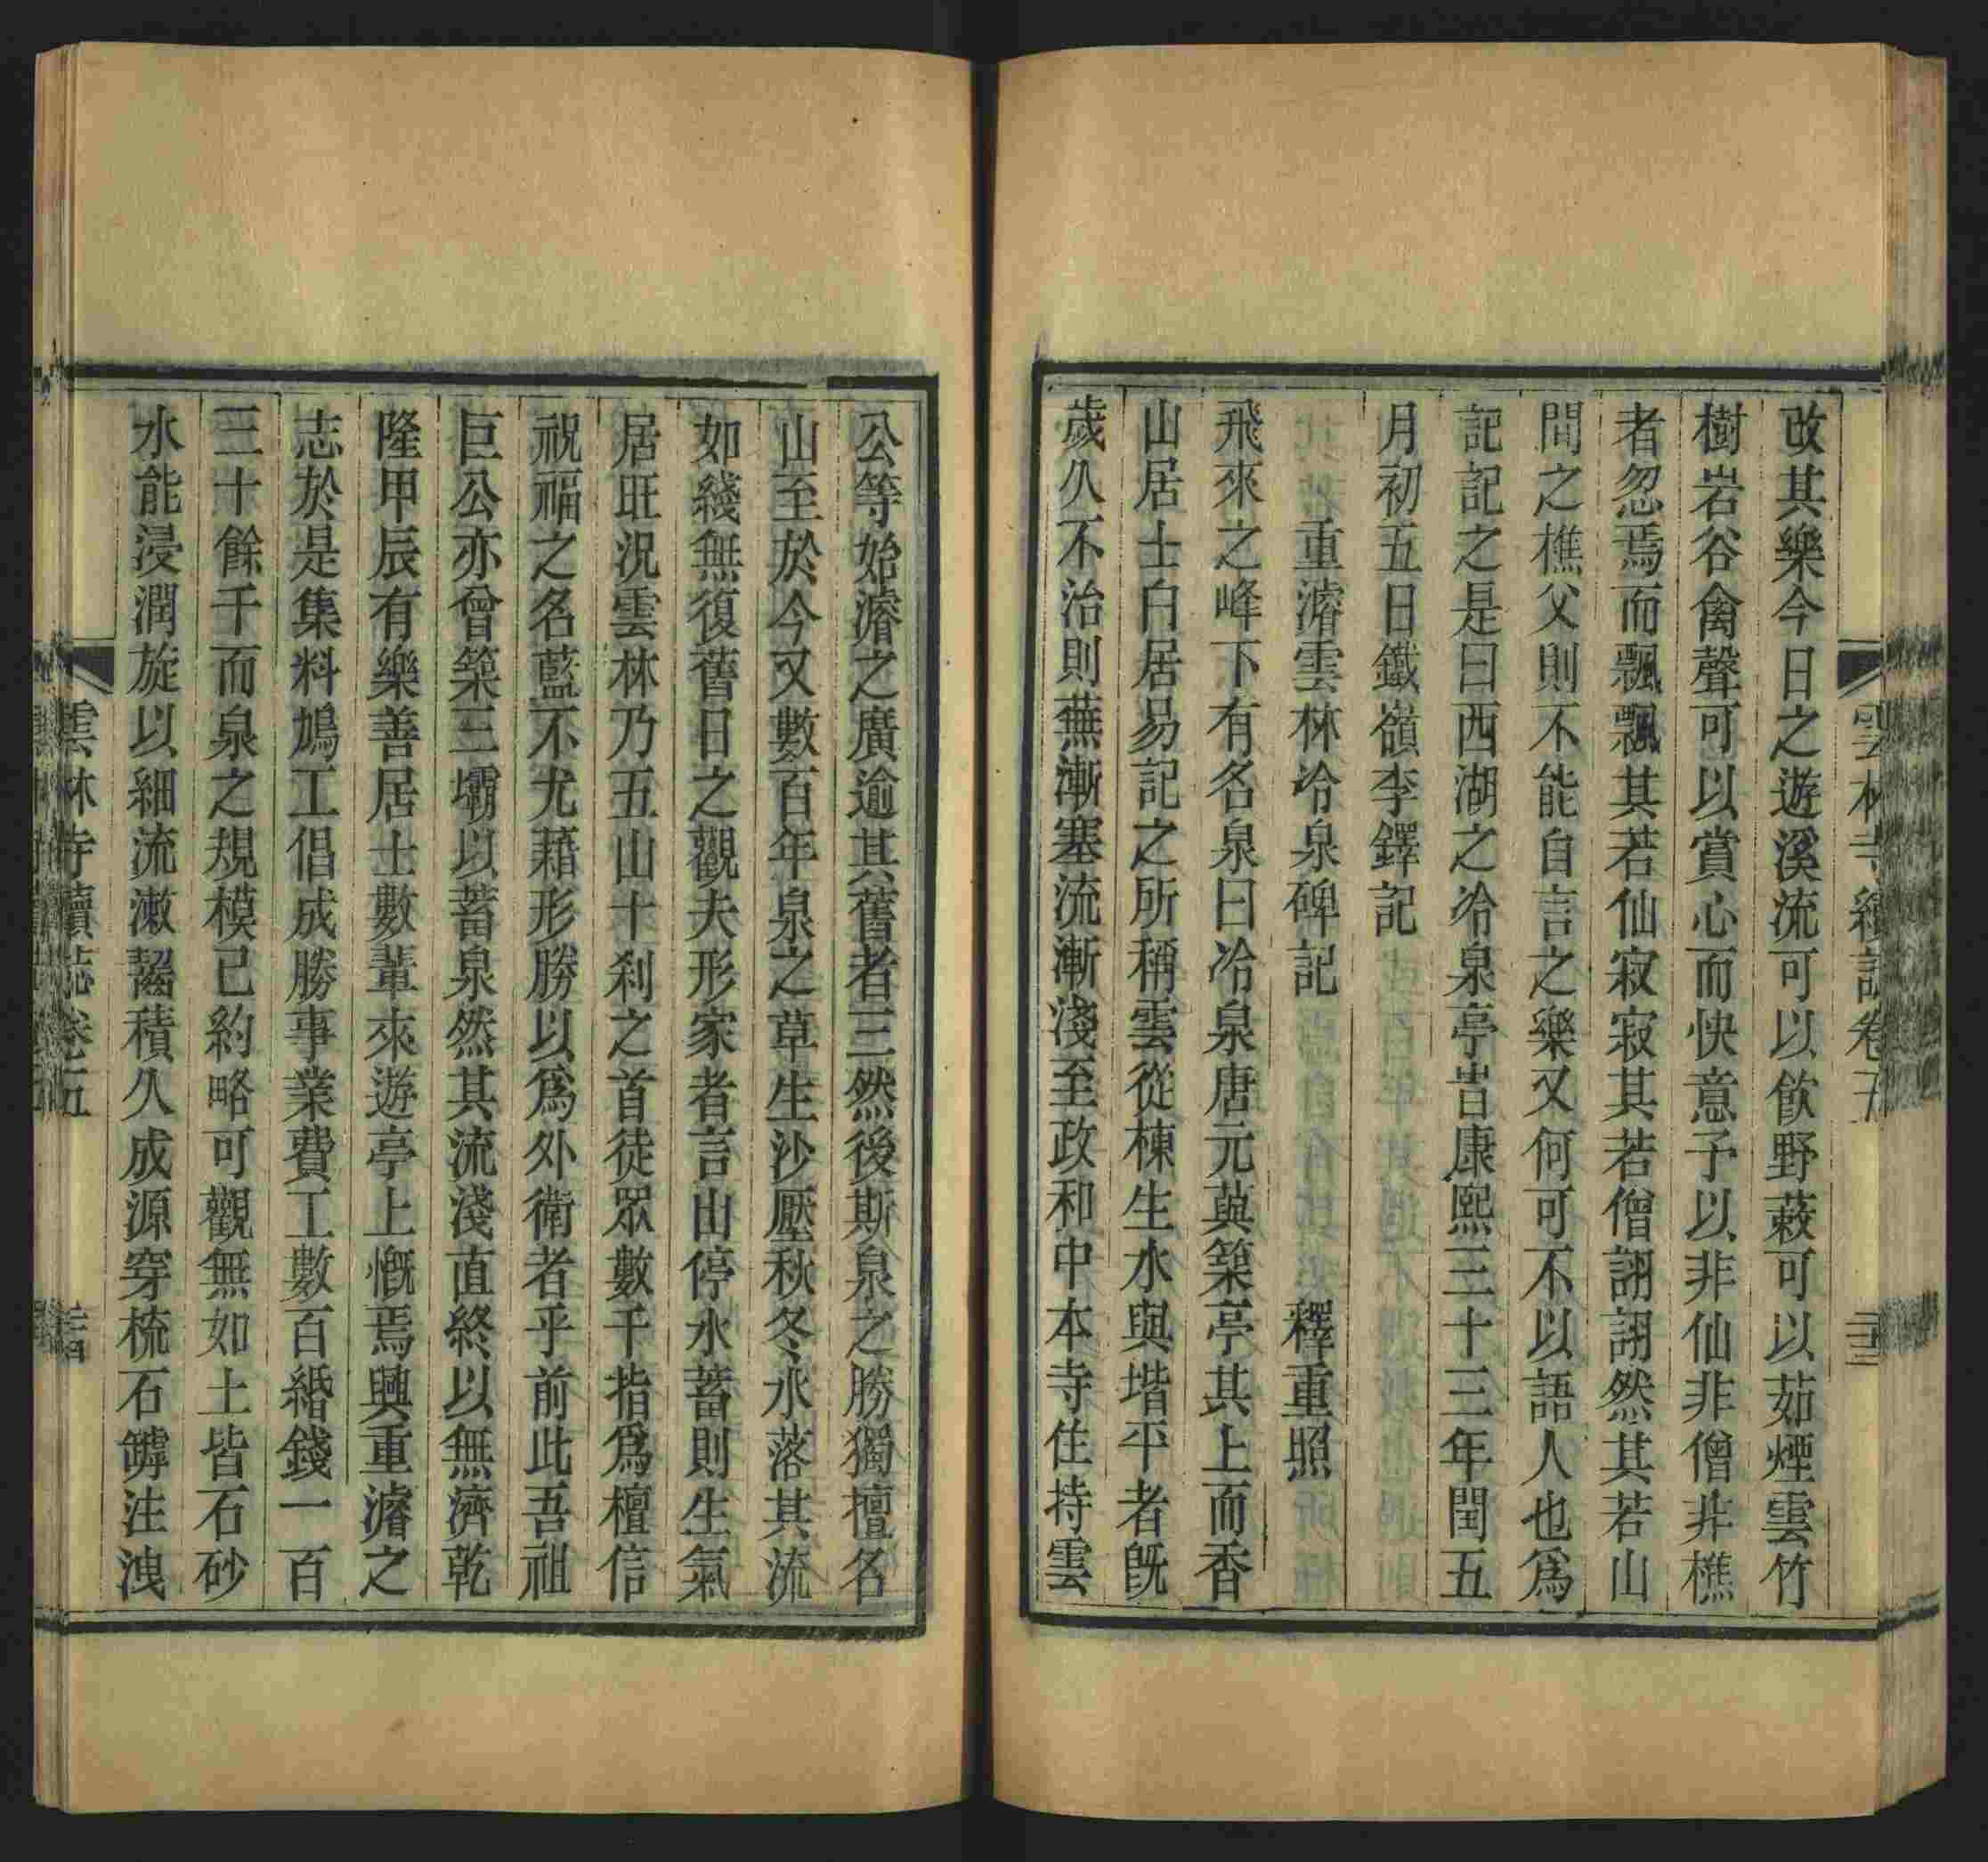 改其樂今日之遊溪流可以飲野蔌可以茹煙雲竹
樹岩谷禽聲可以賞心而快意予以非仙非僧非樵
者忽焉而飄飄其若仙寂寂其若僧詡詡然其若山
間之樵父則不能自言之樂又何可不以語人也爲
記記之是曰西湖之冷泉亭旹康熙三十三年閏五
月初五日鐵嶺李鐸記
重濬雲林冷泉碑記　釋重照
飛來之峰下有名泉曰冷泉唐元萸築亭其上而香
山居士白居易記之所稱雲從棟生水與堦平者旣
歲久不治則蕪漸塞流漸淺至政和中本寺住持雲
公等始濬之廣逾其舊者三然後斯泉之勝獨擅名
山至於今又數百年泉之草生沙壓秋冬水落其流
如綫無復舊日之觀夫形家者言山停水蓄則生氣
居旺況雲林乃五山十刹之首徒眾數千指爲檀信
祝福之名藍不尤藉形勝以爲外衛者乎前此吾祖
巨公亦曾築三壩以蓄泉然其流淺直終以無濟乾
隆甲辰有樂善居士數輩來遊亭上慨焉興重濬之
志於是集料鳩工倡成勝事業費工數百緡錢一百
三十餘千而泉之規模已約略可觀無如土皆石砂
水能浸潤旋以細流潄齧積久成源穿梳石罅注洩
雲林寺續誌卷五